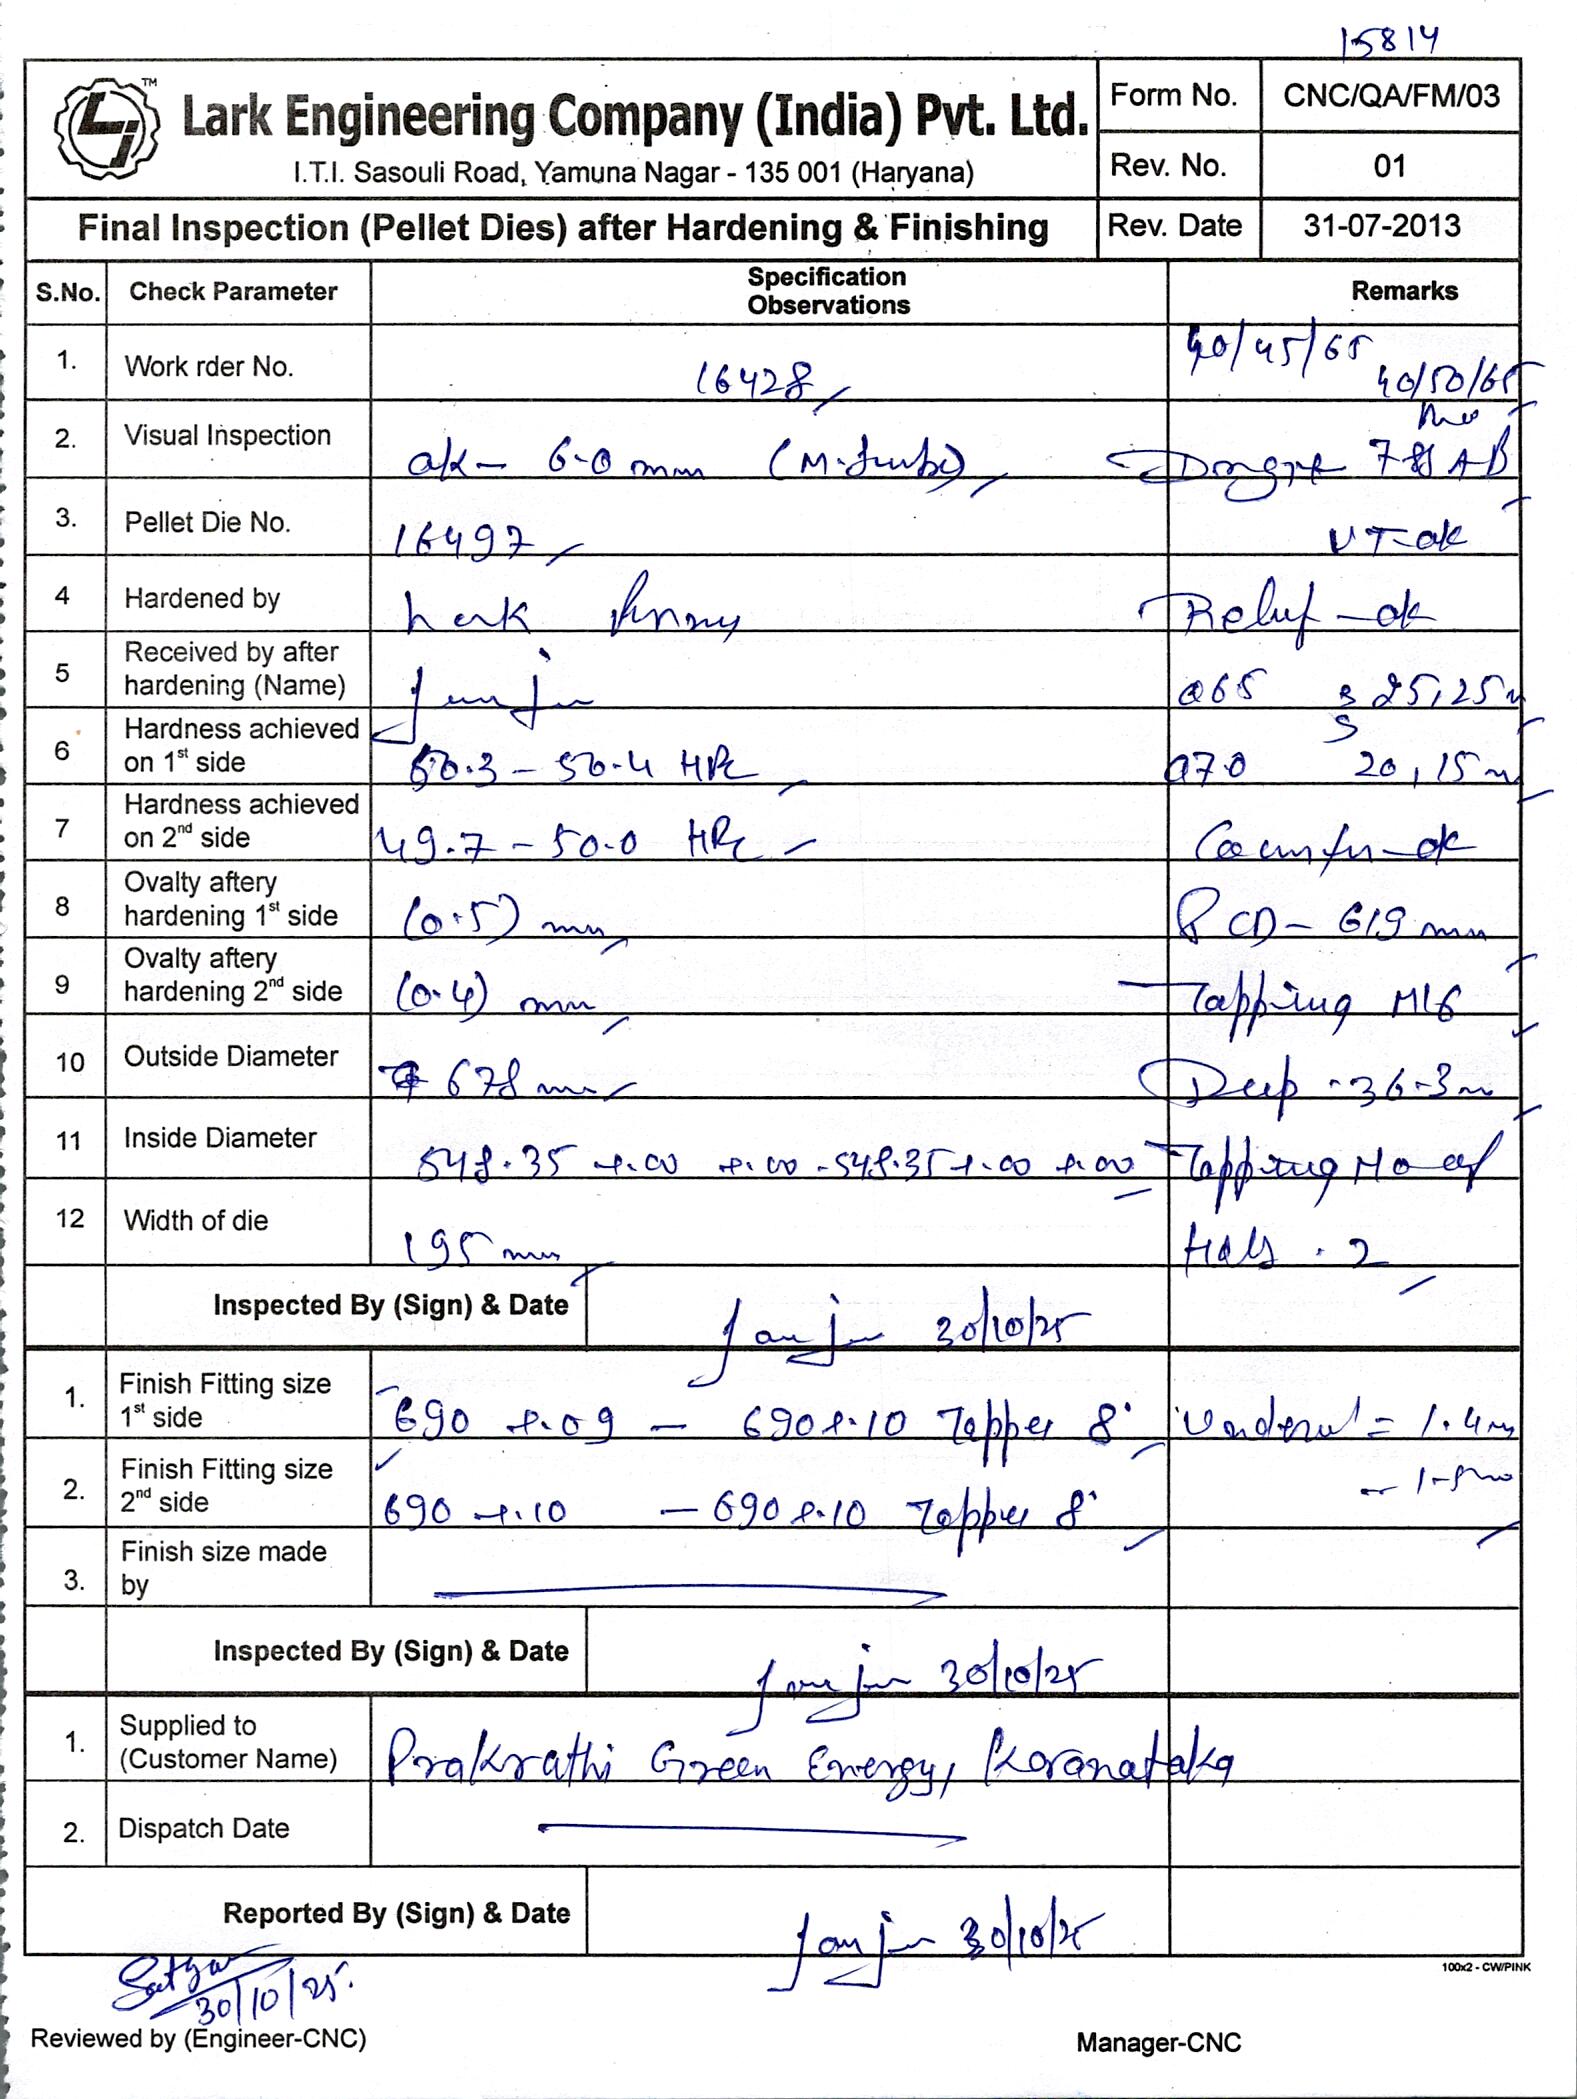 15814
TM
Lark Engineering Company (India) Pvt. Ltd.
I.T.I. Sasouli Road, Yamuna Nagar - 135 001 (Haryana)
Form No. CNC/QA/FM/03
Rev. No. 01
Final Inspection (Pellet Dies) after Hardening & Finishing
Rev. Date 31-07-2013
S.No. Check Parameter Specification Observations Remarks
1. Work rder No. 16428 40/45/65
40/50/65
2. Visual Inspection ok - 6.0 mm
3. Pellet Die No. 16497 UT-ok
4 Hardened by Relief - ok
5 Received by after hardening (Name)
6 Hardness achieved on 1st side 50.3 - 50.4 HRc
7 Hardness achieved on 2nd side 49.7 - 50.0 HRc
8 Ovalty aftery hardening 1st side (0.5) mm PCD - 619 mm
9 Ovalty aftery hardening 2nd side (0.4) mm Tapping M16
10 Outside Diameter 678 mm Deep - 36.3m
11 Inside Diameter 548.35 +.00 +.00 - 548.35 +.00 +.00 Tapping No of
12 Width of die 195 mm 2
Inspected By (Sign) & Date 30/10/25
1. Finish Fitting size 1st side 690 +.09 - 690 +.10 Tapper 8° = 1.4m
2. Finish Fitting size 2nd side 690 +.10 - 690 +.10 Tapper 8°
3. Finish size made by
Inspected By (Sign) & Date 30/10/25
1. Supplied to (Customer Name) Prakrathi Green Energy, Koranataka
2. Dispatch Date
Reported By (Sign) & Date 30/10/25
100x2 - CW/PINK
30/10/25.
Reviewed by (Engineer-CNC) Manager-CNC